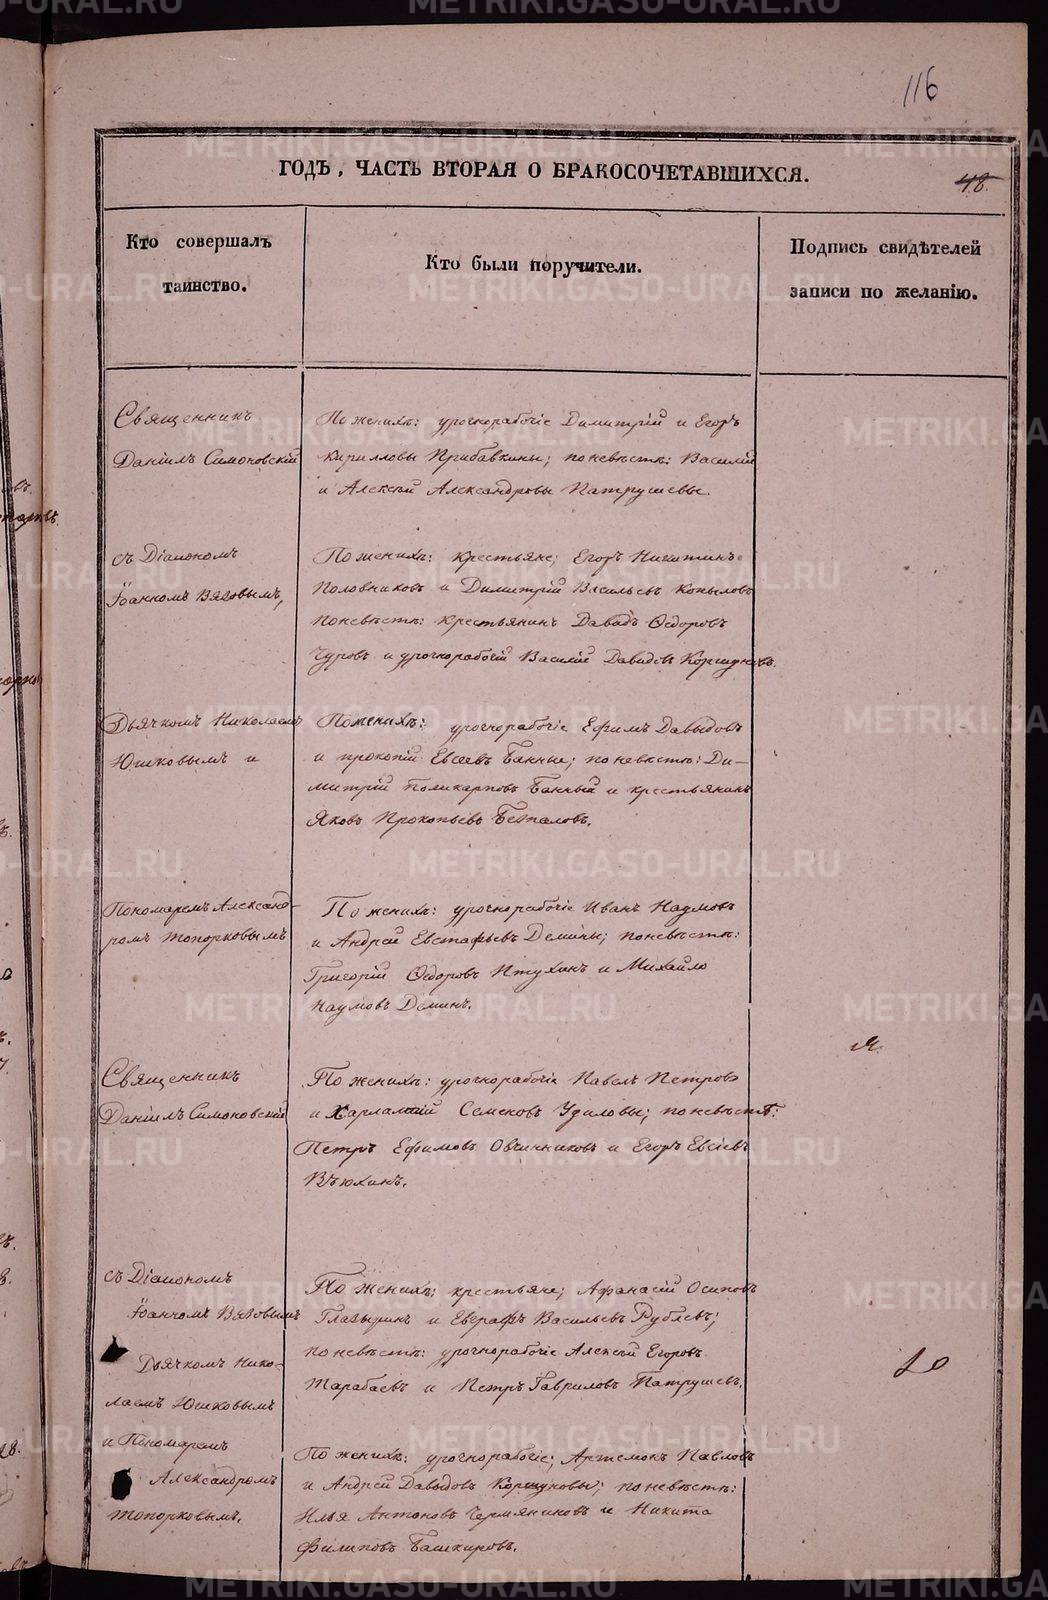 116
ГОДЪ, ЧАСТЬ ВТОРАЯ О БРАКОСОЧЕТАВШИХСЯ.
48.
Кто совершалъ
таинство.
Кто были поручители.
Подпись свидѣтелей
записи по желанію.
Священникъ
Даніилъ Симоновскій
съ Діакономъ
Іоанномъ Вяговымъ,
Дьячкомъ Николаемъ
Юшковымъ и
Пономаремъ Александ-
ромъ Топорковымъ
По женихѣ: урочнорабочіе Димитрій и Егоръ
Кирилловы Прибавкины; по невѣстѣ: Василій
и Алексѣй Александровы Патрушевы.
По женихѣ: крестьяне; Егоръ Никитинъ
Половниковъ и Димитрій Васильевъ Копыловъ
по невѣстѣ: крестьянинъ Давидъ Ѳедоровъ
Чуровъ и урочнорабочій Василій Давидовъ Коршуновъ.
По женихѣ: урочнорабочіе Ефимъ Давыдовъ
и Прокопій Евсеевъ Банные; по невѣстѣ: Ди-
митрій Поликарповъ Банный и крестьянинъ
Яковъ Прокопьевъ Безпаловъ.
По женихѣ: урочнорабочіе Иванъ Наумовъ
и Андрей Евстафьевъ Демины; по невѣстѣ:
Григорій Ѳедоровъ Птухинъ и Михайло
Наумовъ Деминъ.
Священникъ
Даніилъ Симоновскій
съ Діакономъ
Іоанномъ Вяговымъ
Дьячкомъ Нико-
лаемъ Юшковымъ
и Пономаремъ
Александромъ
Топорковымъ.
По женихѣ: урочнорабочіе Павелъ Петровъ
и Харлампій Семеновъ Удиловы; по невѣстѣ:
Петръ Ефимовъ Овчинниковъ и Егоръ Евсіевъ
Вьюхинъ.
По женихѣ; крестьяне; Афанасій Осиповъ
Глазыринъ и Евграфъ Васильевъ Рублевъ;
по невѣстѣ: урочнорабочіе Алексѣй Егоровъ
Тарабаевъ и Петръ Гавриловъ Патрушевъ.
По женихѣ: урочнорабочіе; Артемонъ Павловъ
и Андрей Давыдовъ Коршуновы; по невѣстѣ:
Илья Антоновъ Чермяниновъ и Никита
Филиповъ Башкировъ.
METRIKI.GASO-URAL.RU